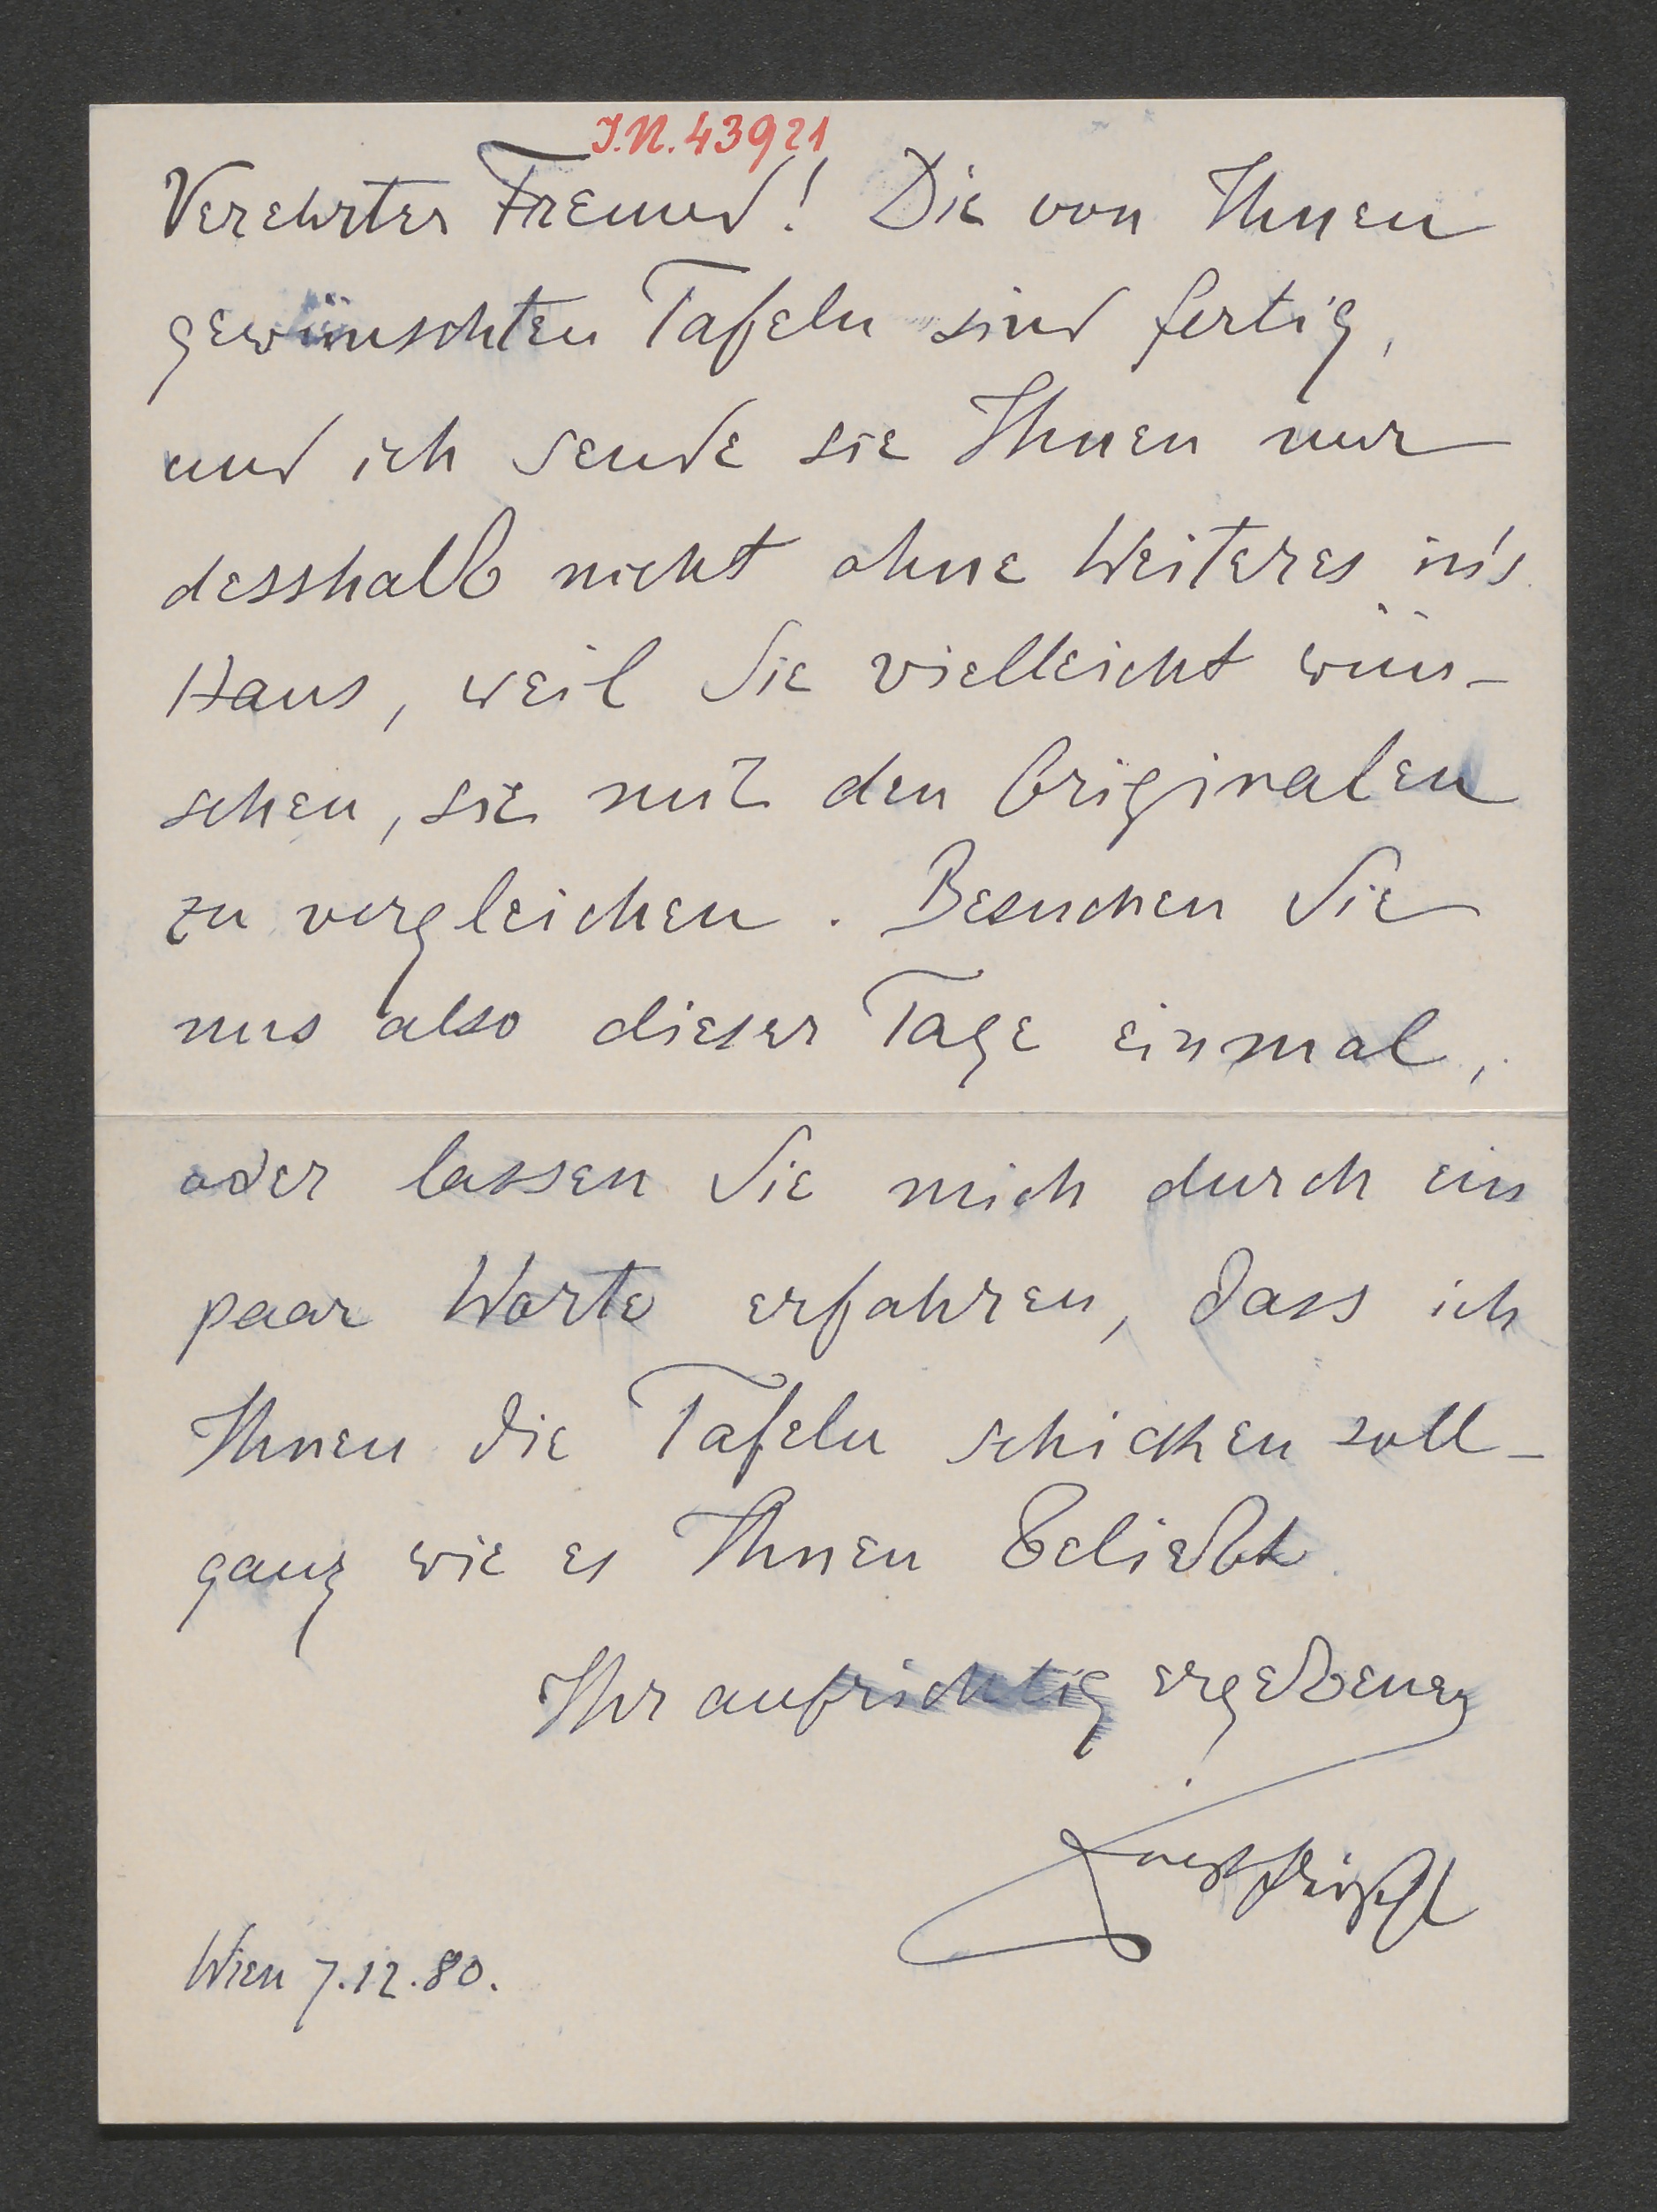 J.N. 43921
Verehrter Freund! Die von Ihnen
gewünschten Tafeln sind fertig,
und ich sende sie Ihnen nur
desshalb nicht ohne Weiteres in's
Haus, weil Sie vielleicht wün-
schen, sie mit den Originalen
zu vergleichen. Besuchen Sie
uns also dieser Tage einmal,
oder lassen Sie mich durch ein
paar Worte erfahren, dass ich
Ihnen die Tafeln schicken soll -
ganz wie es Ihnen beliebt.
Ihr aufrichtig ergebener
Wien 7.12.80.